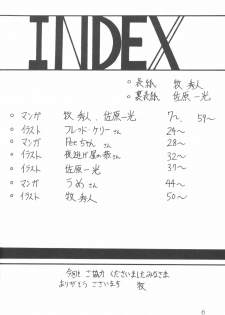 INDEX
○ 表紙 牧 秀人
○ 裏表紙 佐原一光
○ マンガ 牧 秀人、佐原一光 7〜、59〜
○ イラスト フレッド・ケリーさん 24〜
○ マンガ Peeちゃん 28〜
○ イラスト 夜逃げ屋の恭さん 32〜
○ イラスト 佐原一光 37〜
○ マンガ うめさん 44〜
○ イラスト 牧 秀人 50〜
今回も ご協力 くださいましたみなさま
ありがとう ございます 牧
6